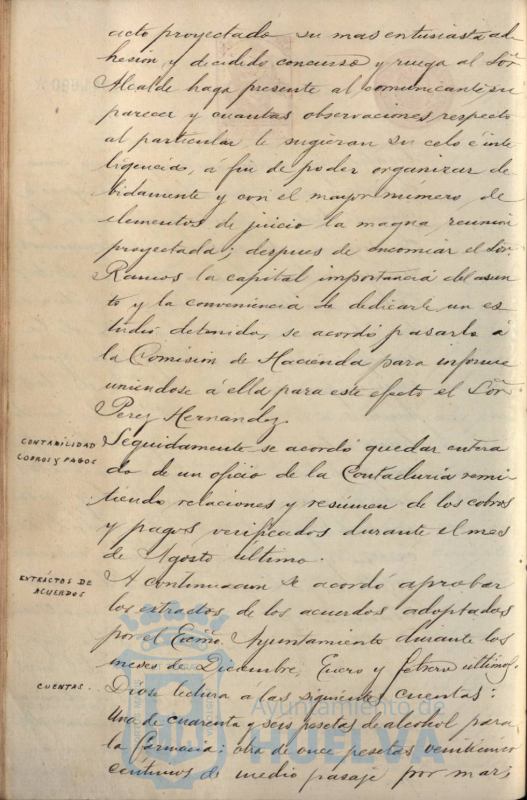 acto proyectado su mas entusiasta ad
hesion y decidido concurso y ruega al Sor.
Alcalde haga presente al comunicante, su
parecer y cuantas observaciones respecto
al particular le sugieran su celo é inte
ligencia, á fin de poder organizar de
bidamente y con el mayor número de
elementos de juicio la magna reunion
proyectada; despues de encomiar el Sor.
Ramos la capital importancia del asun
to y la conveniencia de dedicarle un es
tudio detenido, se acordó pasarlo á
la Comisión de Hacienda para informe
uniendose á ella para este efecto el Sor.
Perez Hernandez.
CONTABILIDAD
COBROS y PAGOS
Seguidamente se acordó quedar entera
do de un oficio de la Contaduría remi
tiendo relaciones y resúmen de los cobros
y pagos verificados durante el mes
de Agosto último.
EXTRACTOS DE
ACUERDOS
A continuacion se acordó aprobar
los extractos de los acuerdos adoptados
por el Excmo. Ayuntamiento durante los
meses de Diciembre, Enero y febrero ultimos.
CUENTAS.
Diose lectura a las siguientes cuentas:
Una de cuarenta y seis pesetas de alcohol para
la Farmacia: otra de once pesetas veinticinco
centimos de medio pasaje por mar;
Ayuntamiento de
HUELVA